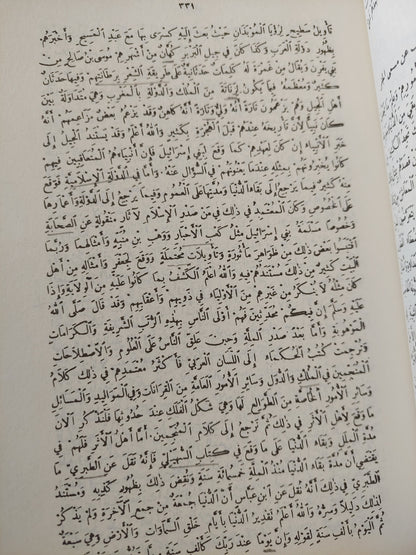 ٣٣١
تأويل سطيح لرؤيا الموبذان حيث بعث إليه كسرى بها مع عبد المسيح وأخبرهم
بظهور دولة العرب وكذا كان في جيل البربر كهان من أشهرهم موسى بن صالح من
بني يفرن ويقال من غمرة وله كلمات حدثانية على طريقة الشعر برطانتهم وفيها حدثان
كثير ومعظمه فيما يكون لزناتة من الملك والدولة بالمغرب وهي متداولة بين
أهل الجيل وهم يزعمون تارة أنه ولي وتارة أنه كاهن وقد يزعم بعض مزاعمهم أنه
كان نبيا لأن تاريخه عندهم قبل الهجرة بكثير والله أعلم وقد يستند الجيل إلى
خبر الأنبياء إن كان لعهدهم كما وقع لبني إسرائيل فإن أنبياءهم المتعاقبين فيهم
كانوا يخبرونهم بمثله عندما يعنونهم في السؤال عنه وأما في الدولة الإسلامية فوقع
منه كثير فيما يرجع إلى بقاء الدنيا ومدتها على العموم وفيما يرجع إلى الدولة وأعمارها
على الخصوص وكان المعتمد في ذلك في صدر الإسلام لآثار منقولة عن الصحابة
وخصوصا مسلمة بني إسرائيل مثل كعب الأحبار ووهب بن منبه وأمثالهما وربما
اقتبسوا بعض ذلك من ظواهر مأثورة وتأويلات محتملة ووقع لجعفر وأمثاله من أهل
البيت كثير من ذلك مستندهم فيه والله أعلم الكشف بما كانوا عليه من الولاية وإذا
كان مثله لا ينكر من غيرهم من الأولياء في ذويهم وأعقابهم وقد قال صلى الله
عليه وسلم إن فيكم محدثين فهم أولى الناس بهذه الرتب الشريفة والكرامات
الموهوبة وأما بعد صدر الملة وحين علق الناس على العلوم والاصطلاحات
وترجمت كتب الحكماء إلى اللسان العربي فأكثر معتمدهم في ذلك كلام
المنجمين في الملك والدول وسائر الأمور العامة من القرانات وفي المواليد والمسائل
وسائر الأمور الخاصة من الطوالع لها وهي شكل الفلك عند حدوثها فلنذكر الآن
ما وقع لأهل الأثر في ذلك ثم نرجع إلى كلام المنجمين. أما أهل الأثر فلهم في
مدة الملل وبقاء الدنيا على ما وقع في كتاب السهيلي فإنه نقل عن الطبري ما
يقتضي أن مدة بقاء الدنيا منذ الملة خمسمائة سنة ونقض ذلك بظهور كذبه ومستند
الطبري في ذلك أنه نقل عن ابن عباس أن الدنيا جمعة من جمع الآخرة ولم يذكر
لذلك دليلا وسره والله أعلم تقدير الدنيا بأيام خلق السماوات والأرض وهي سبعة
ثم اليوم بألف سنة لقوله وإن يوما عند ربك كألف سنة